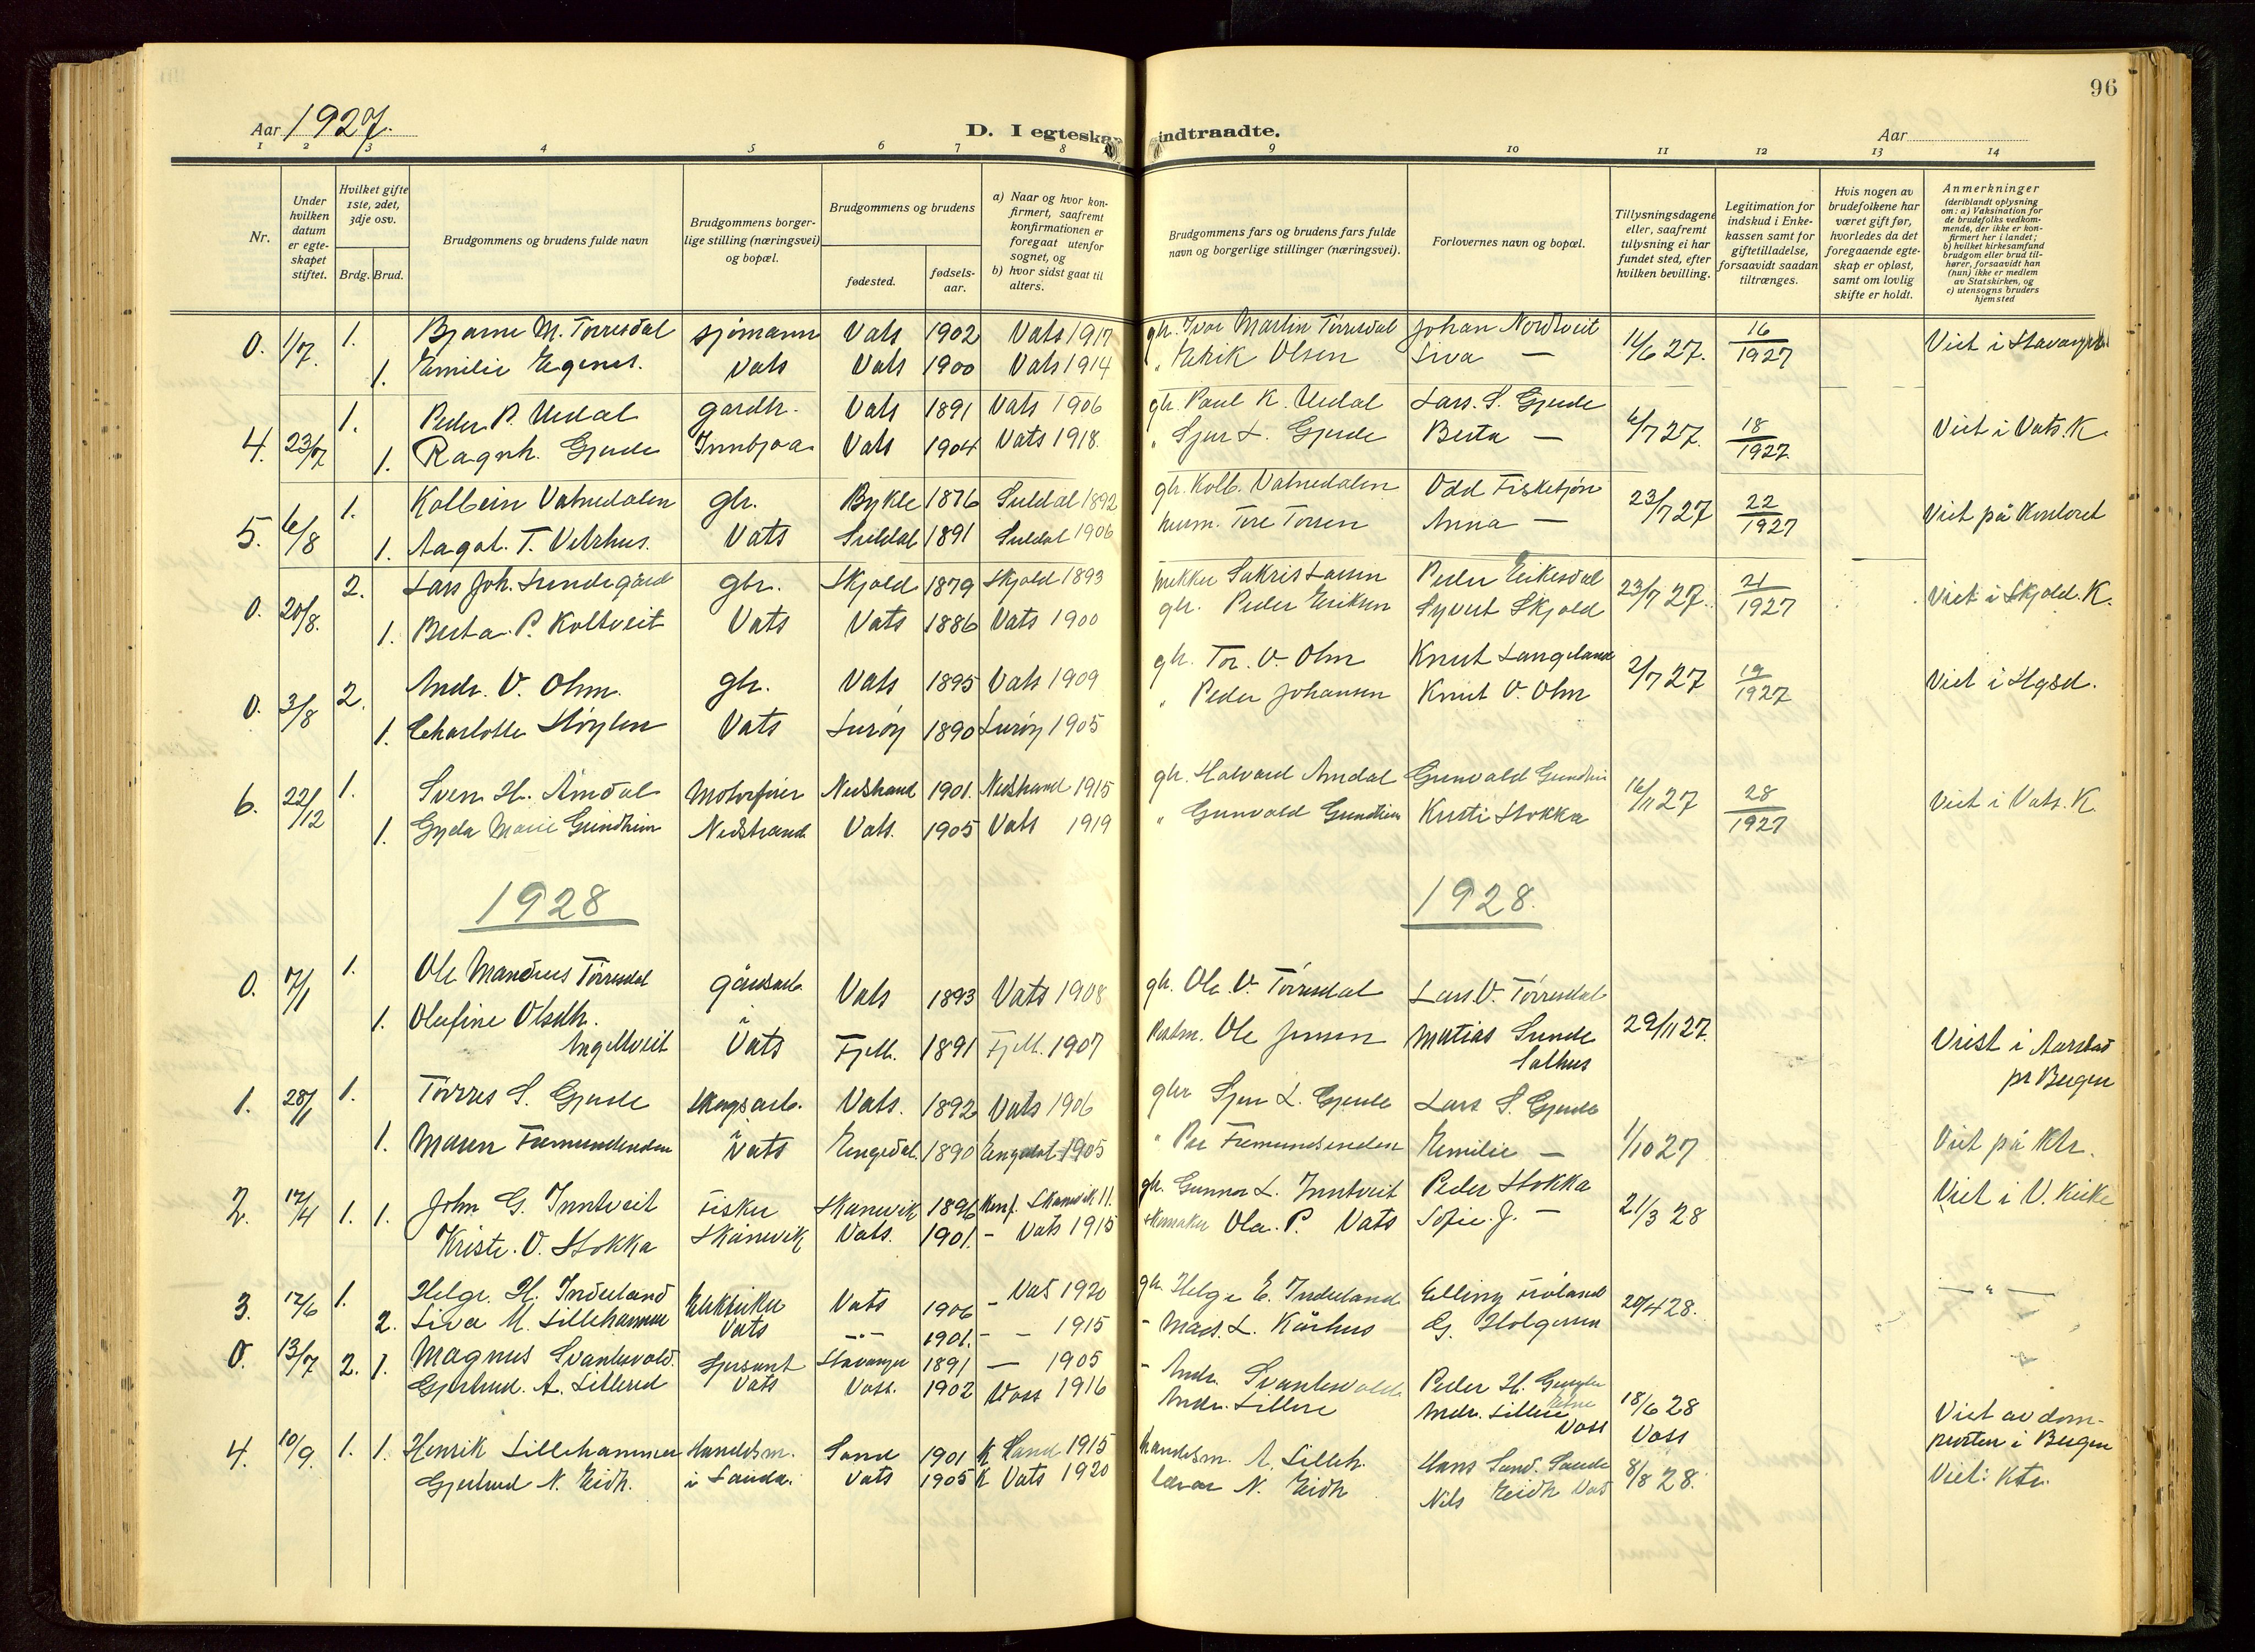 96
Aar 1927.
D. I egteskap indtraadte.
Aar
1 2 3 4 5 6 7 8 9 10 11 12 13 14
Nr.
Under hvilken datum er egteskapet stiftet.
Hvilket gifte 1ste, 2det, 3dje osv.
Brdg. Brud.
Brudgommens og brudens fulde navn
Brudgommens borgerlige stilling (næringsvei) og bopæl.
Brudgommens og brudens
fødested.
fødselsaar.
a) Naar og hvor konfirmert, saafremt konfirmationen er foregaat utenfor sognet, og
b) hvor sidst gaat til alters.
Brudgommens fars og brudens fars fulde navn og borgerlige stillinger (næringsvei).
Forlovernes navn og bopæl.
Tillysningsdagene eller, saafremt tillysning ei har fundet sted, efter hvilken bevilling.
Legitimation for indskud i Enkekassen samt for giftetilladelse, forsaavidt saadan tiltrænges.
Hvis nogen av brudefolkene har været gift før, hvorledes da det foregaaende egteskap er opløst, samt om lovlig skifte er holdt.
Anmerkninger (deriblandt oplysning om: a) Vaksination for de brudefolks vedkommende, der ikke er konfirmert her i landet; b) hvilket kirkesamfund brudgom eller brud tilhører, forsaavidt han (hun) ikke er medlem av Statskirken, og c) utensogns bruders hjemsted
0. 1/7. 1. Bjarne M. Tørresdal sjømann Vats 1902 Vats 1917 gbr. Ivar Martin Tørresdal Johan Nordtveit 11/6 27. 16/1927 Viet i Stavanger
1. Emilie Egenes. Vats Vats 1900 Vats 1914 " Eirik Olsen Siva —
4. 23/7 1. Peder P. Uudal gardbr. Vats 1891 Vats 1906 gbr. Paul K. Uudal Lars. S. Gjerde 6/7 27. 18/1927 Viet i Vats. K.
1. Ragnh. Gjerde Innbjoa Vats 1904 Vats 1918. " Sjur L. Gjerde Berta —
5. 6/8 1. Kolbein Vatnedalen gbr. Bykle 1876 Suldal 1892 gbr. Kolb. Vatnedalen Odd Fisketjøn 23/7 27 22/1927 Viet på Kontoret
1. Aagot. T. Vetrhus. Vats Suldal 1891 Suldal 1906 husm. Tore Torsen Anna —
0. 20/8. 2. Lars Joh. Sundegård gbr. Skjold 1879 Skjold 1893 Sakris Larsen Peder Eikesdal 23/7 27. 21/1927 Viet i Skjold. K.
1. Berta. P. Koltveit Vats Vats 1886 Vats 1900 gbr. Peder Eriksen Syvert Skjold
0. 3/8 2. Andr. V. Ohm. gbr. Vats 1895 Vats 1909 gbr. Tor. V. Ohm Knut Langeland 2/7 27 19/1927 Viet i Hgsd.
1. Charlotte Høylen Vats Lurøy 1890 Lurøy 1905 " Peder Johansen Knut V. Ohm
6. 22/12 1. Sven H. Åmdal Motorfører Nedstrand 1901. Nedstrand 1915 gbr. Halvard Amdal Gunvald Gundheim 16/11 27 28/1927 Viet i Vats. K.
1. Gyda Marie Gundheim Nedstrand Vats. 1905 Vats 1919 " Gunvald Gundheim Kristi Stokka
1928
1928.
0. 7/1 1. Ole Mandrus Tørresdal gårdsarb. Vats 1893 Vats 1908 gbr. Ole. V. Tørresdal Lars. V. Tørresdal 29/11 27.
1. Olefine Olsdtr. Angeltveit i Vats Fjell. 1891 Fjell. 1907 Ole Jensen Matias Sunde Salhus Vriet i Aarstad pr Bergen
1. 28/1 1. Tørres S. Gjerde skogsarb. Vats. 1892 Vats 1906 gbr Sjur L. Gjerde Lars S. Gjerde
1. Maren Femundsenden i Vats Engerdal. 1890 Engerdal 1905 " Per Femundsenden Emilie — 1/10 27 Viet på Ktr.
2. 12/4 1. 1. John G. Inntveit Fisker Skånevik 1896 Konf. Skånevik 11. gbr. Gunnar L. Inntveit Peder Stokka 21/3 28 Viet i V. Kirke
Kristi. O. Stokka Skånevik Vats. 1901. - Vats 1915 skomaker Ola. P. Vats Sofie. J. —
3. 12/6 1. Helge. H. Inderland Elektriker Vats 1906 - Vats 1920 gbr. Helge E. Inderland Elling Frøland 20/4 28. — " —
2. Siva M. Lillehammer Vats -"- 1901. - - 1915 - Mads. L. Kårhus G. Holgersen
0. 13/7 2. 1. Magnus Svantesvold. Sersjant Stavanger 1891 — 1905 - Andr. Svantesvold Peder H. 18/6 28
Gjertrud. A. Lillered Vats Voss. 1902 Voss 1916 Andr. Lillere Andr. Lillere Voss Voss Viet av domprosten i Bergen
4. 10/9. 1. 1. Henrik Lillehammer Handelsm. Sand 1901 K Sand 1915 Handelsm. A. Lilleh. Hans Sand. Sauda 8/8 28. Viet: Ktr.
Gjertrud N. Eidh. i Sauda. Vats 1905 K Vats 1920 lærar N. Eidh Nils Eidh Vats